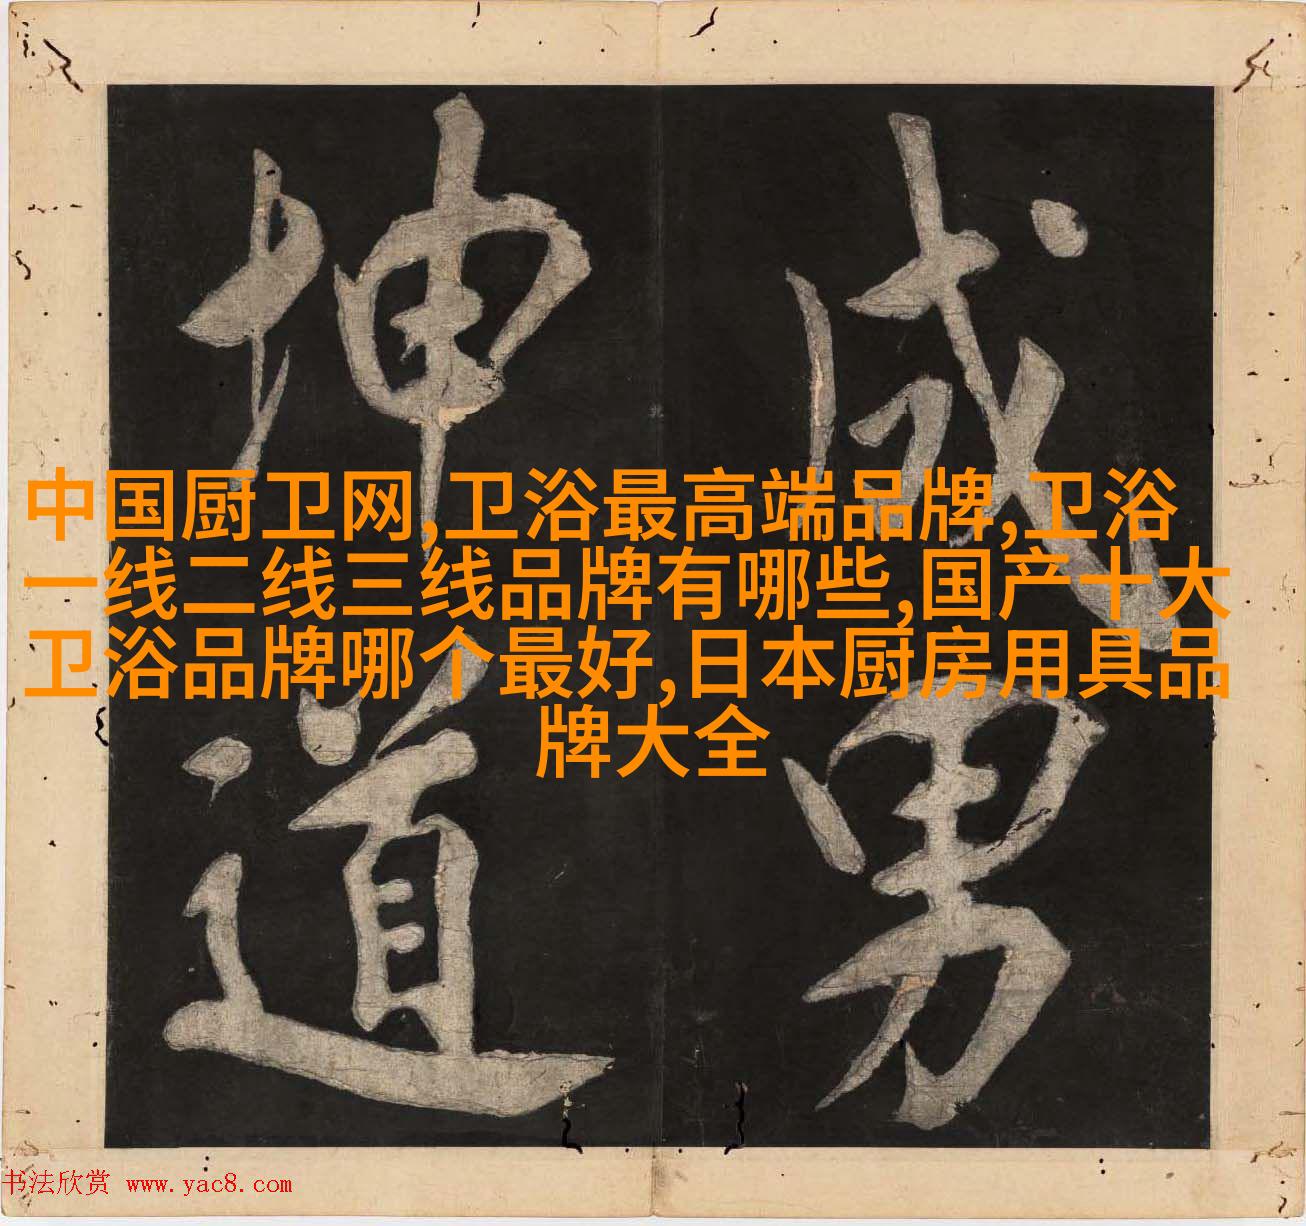 成男
坤道
中国厨卫网,卫浴最高端品牌,卫浴
一线二线三线品牌有哪些,国产十大
卫浴品牌哪个最好,日本厨房用具品
牌大全
书法欣赏 www.yac8.com